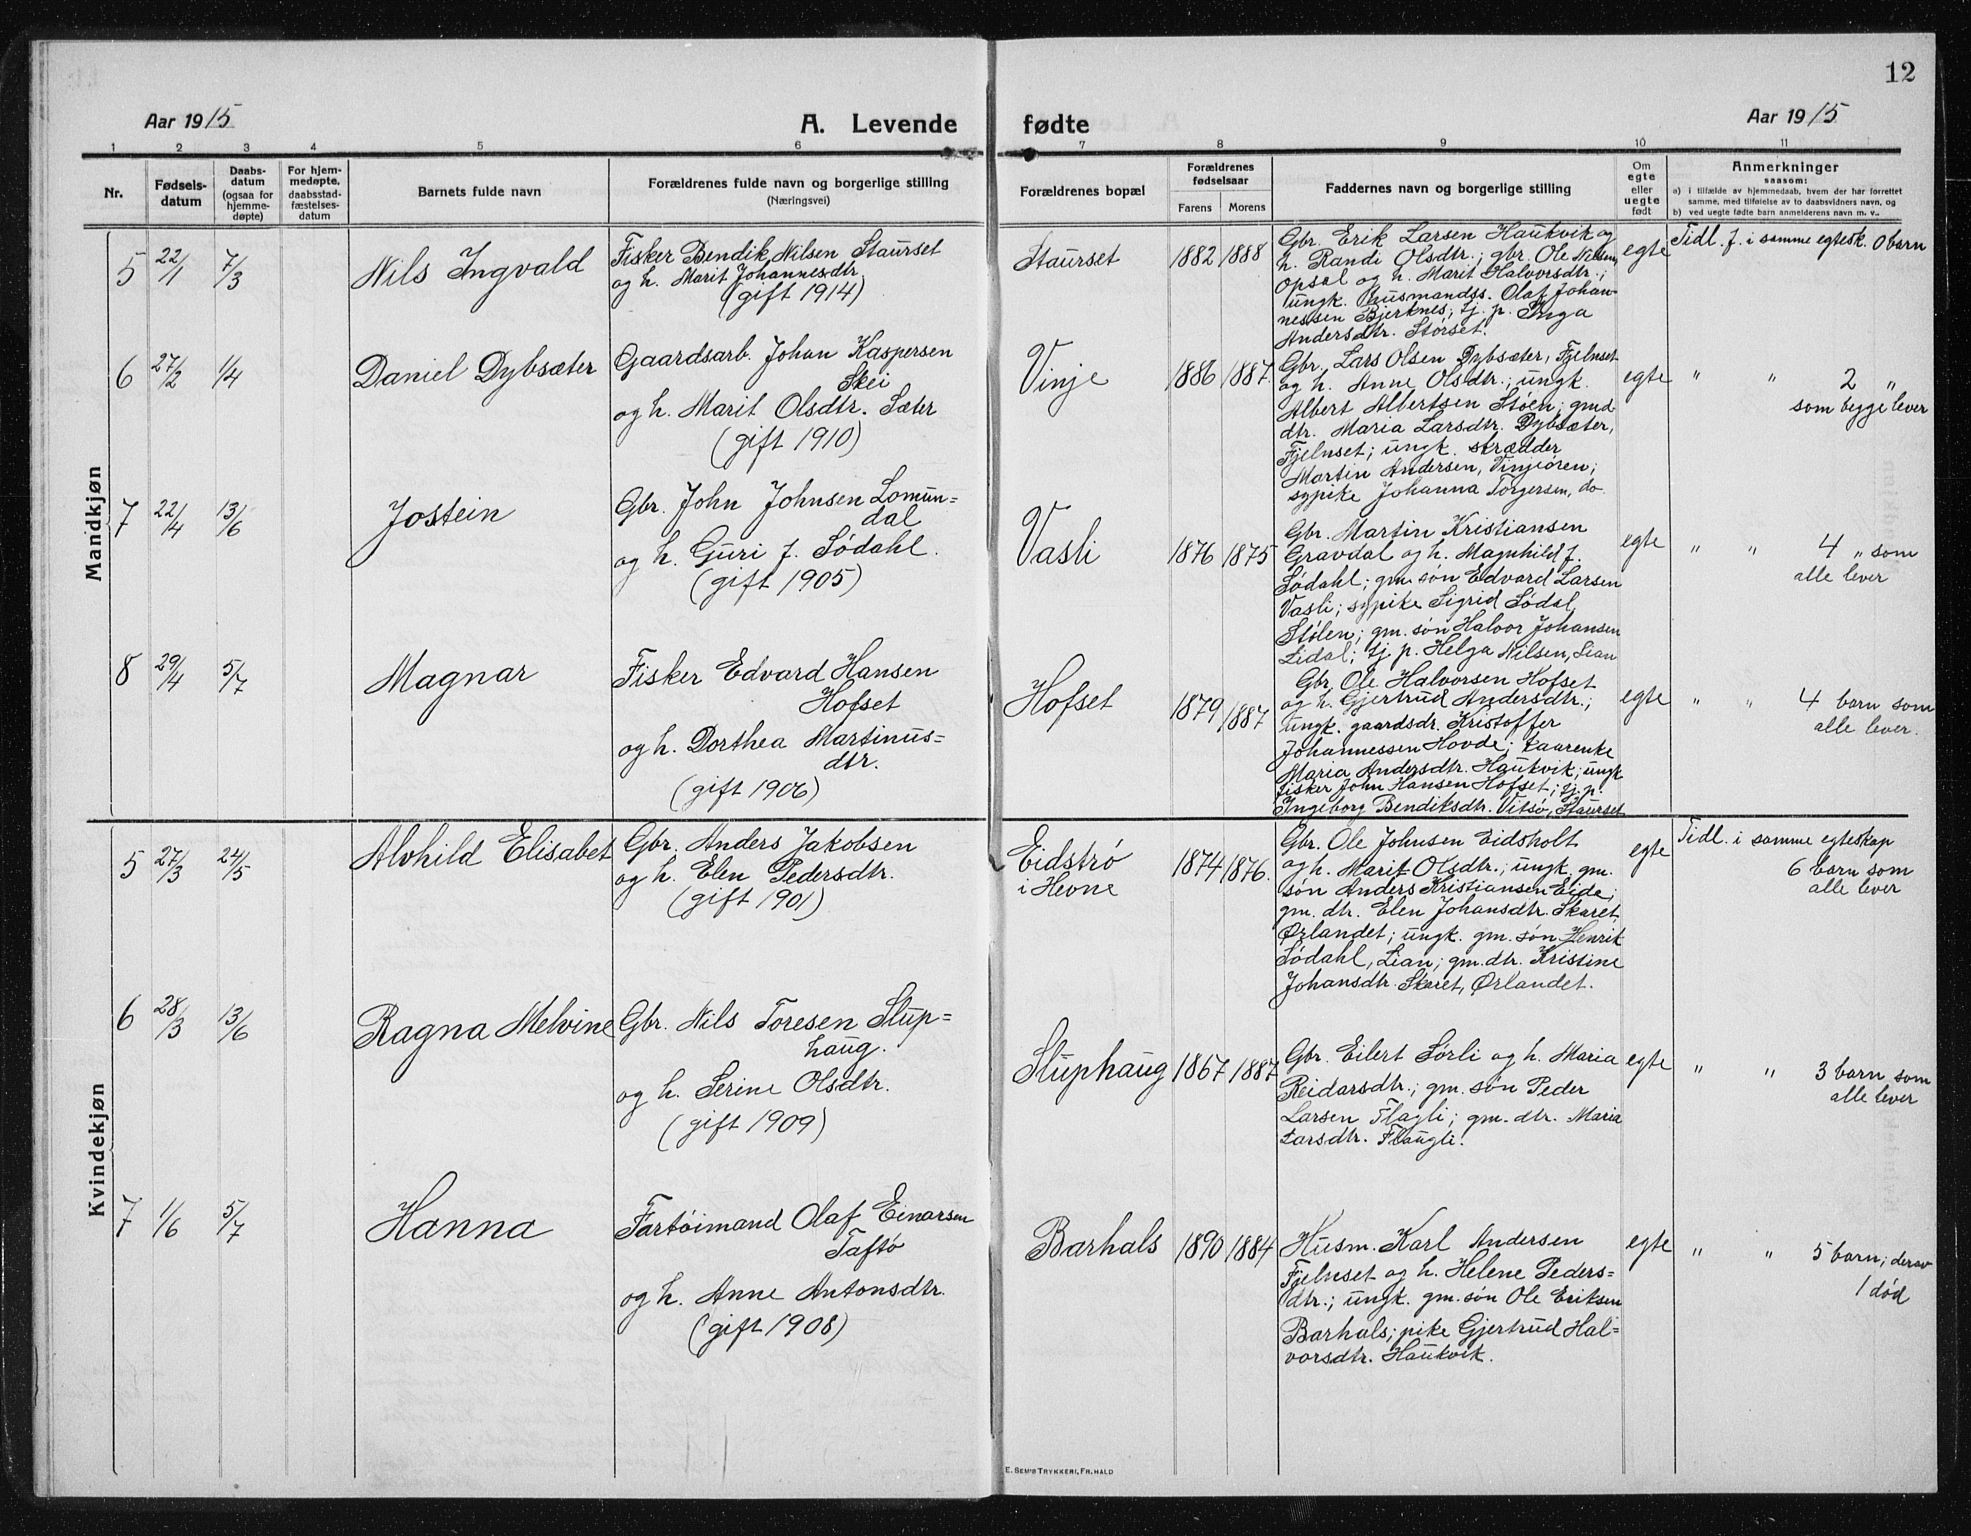 12
Aar 1915
A. Levende fødte
Aar 1915
1 2 3 4 5 6 7 8 9 10 11
Nr.
Fødsels-
datum
Daabs-
datum
(ogsaa for
hjemme-
døpte)
For hjem-
medøpte,
daabsstad-
fæstelses-
datum
Barnets fulde navn
Forældrenes fulde navn og borgerlige stilling
(Næringsvei)
Forældrenes bopæl
Forældrenes
fødselsaar
Farens Morens
Faddernes navn og borgerlige stilling
Om
egte
eller
uegte
født
Anmerkninger
saasom:
a) i tilfælde av hjemmedaab, hvem der har forrettet
samme, med tilføielse av to daabsvidners navn, og
b) ved uegte fødte barn anmelderens navn m. v..
Mandkjøn
5 22/1 7/3
Nils Ingvald
Fisker Bendik Nilsen Staurset
og h. Marit Johannesdtr.
(gift 1914)
Staurset
1882 1888
Gbr. Erik Larsen Haukvik og
h. Randi Olsdtr.; gbr. Ole Nilsen
Opsal og h. Marit Halvorsdtr.;
ungk. husmandss. Olaf Johan-
nessen Bjerknes; tj. p. Inga
Andersdtr. Størset.
egte
Tidl. f. i samme egtesk. 0 barn
6 27/2 1/4
Daniel Dybsæter
Gaardsarb. Johan Kaspersen
Skei
og h. Marit Olsdtr. Sæter
(gift 1910)
Vinje
1886 1887.
Gbr. Lars Olsen Dybsæter, Fjelnset
og h. Anne Olsdtr.; ungk.
Albert Albertsen Støen; gmd
dtr. Maria Larsdtr. Dybsæter,
Fjelnset; ungk. skrædder
Martin Andersen, Vinjeøren;
sypike Johanna Torgersen, do.
egte
" " 2 "
som begge lever
7 22/4 13/6
Jostein
Gbr. John Johnsen Lomun=
dal
og h. Guri f. Sødahl.
(gift 1905)
Vasli
1876 1875
Gbr. Martin Kristiansen
Gravdal og h. Magnhild f.
Sødahl; gm. søn Edvard Larsen
Vasli; sypike Sigrid Sødal,
Stølen; gm. søn Halvor Johansen
Lidal; tj p. Helga Nilsen, Lian
egte
" " 4 " som
alle lever
8 29/4 5/7
Magnar
Fisker Edvard Hansen
Hofset
og h. Dorthea Martinus=
dtr.
(gift 1906)
Hofset
1879 1887
Gbr. Ole Halvorsen Hofset
og h. Gjertrud Andersdtr.;
ungk. gaardsdr. Kristoffer
Johannessen Hovde; taarenke
Maria Andersdtr. Haukvik; ungk
fisker John Hansen Hofset; tj. p.
Ingeborg Bendiksdtr. Vitsø, Staurset
egte
" " 4 barn som
alle lever.
Kvindekjøn
5 27/3 24/5
Alvhild Elisabet
Gbr. Anders Jakobsen
og h. Elen Pedersdtr.
(gift 1901)
Eidstrø
i Hevne
1874 1876.
Gbr. Ole Johnsen Eidsholt
og h. Marit Olsdtr.; ungk. gm.
søn Anders Kristiansen Eide;
gm. dtr. Elen Johansdtr. Skaret,
Ørlandet; ungk. gm. søn Henrik
Sødahl, Lian; gm. dtr. Kristine
Johansdtr. Skaret, Ørlandet.
egte
Tidl. i samme egteskap
6 barn som
alle lever
6 28/3 13/6
Ragna Melvine
Gbr. Nils Toresen Slup=
haug.
og h. Serine Olsdtr.
(gift 1909)
Sluphaug
1867 1887
Gbr. Eilert Sørli og h. Maria
Reidarsdtr.; gm. søn Peder
Larsen Flagli; gm. dtr. Maria
Larsdtr. Flaugli.
egte
" " 3 barn som
alle lever
7 1/6 5/7
Hanna
Fartøimand Olaf Einarsen
Taftø
og h. Anne Antonsdtr.
(gift 1908)
Barhals
1890 1884
Husm. Karl Andersen
Fjelnset og h. Helene Peders=
dtr.; ungk. gm. søn Ole Eriksen
Barhals; pike Gjertrud Hal=
vorsdtr. Haukvik.
egte
" " 5 barn; derav
1 død
E. SEM'S TRYKKERI, FR.HALD